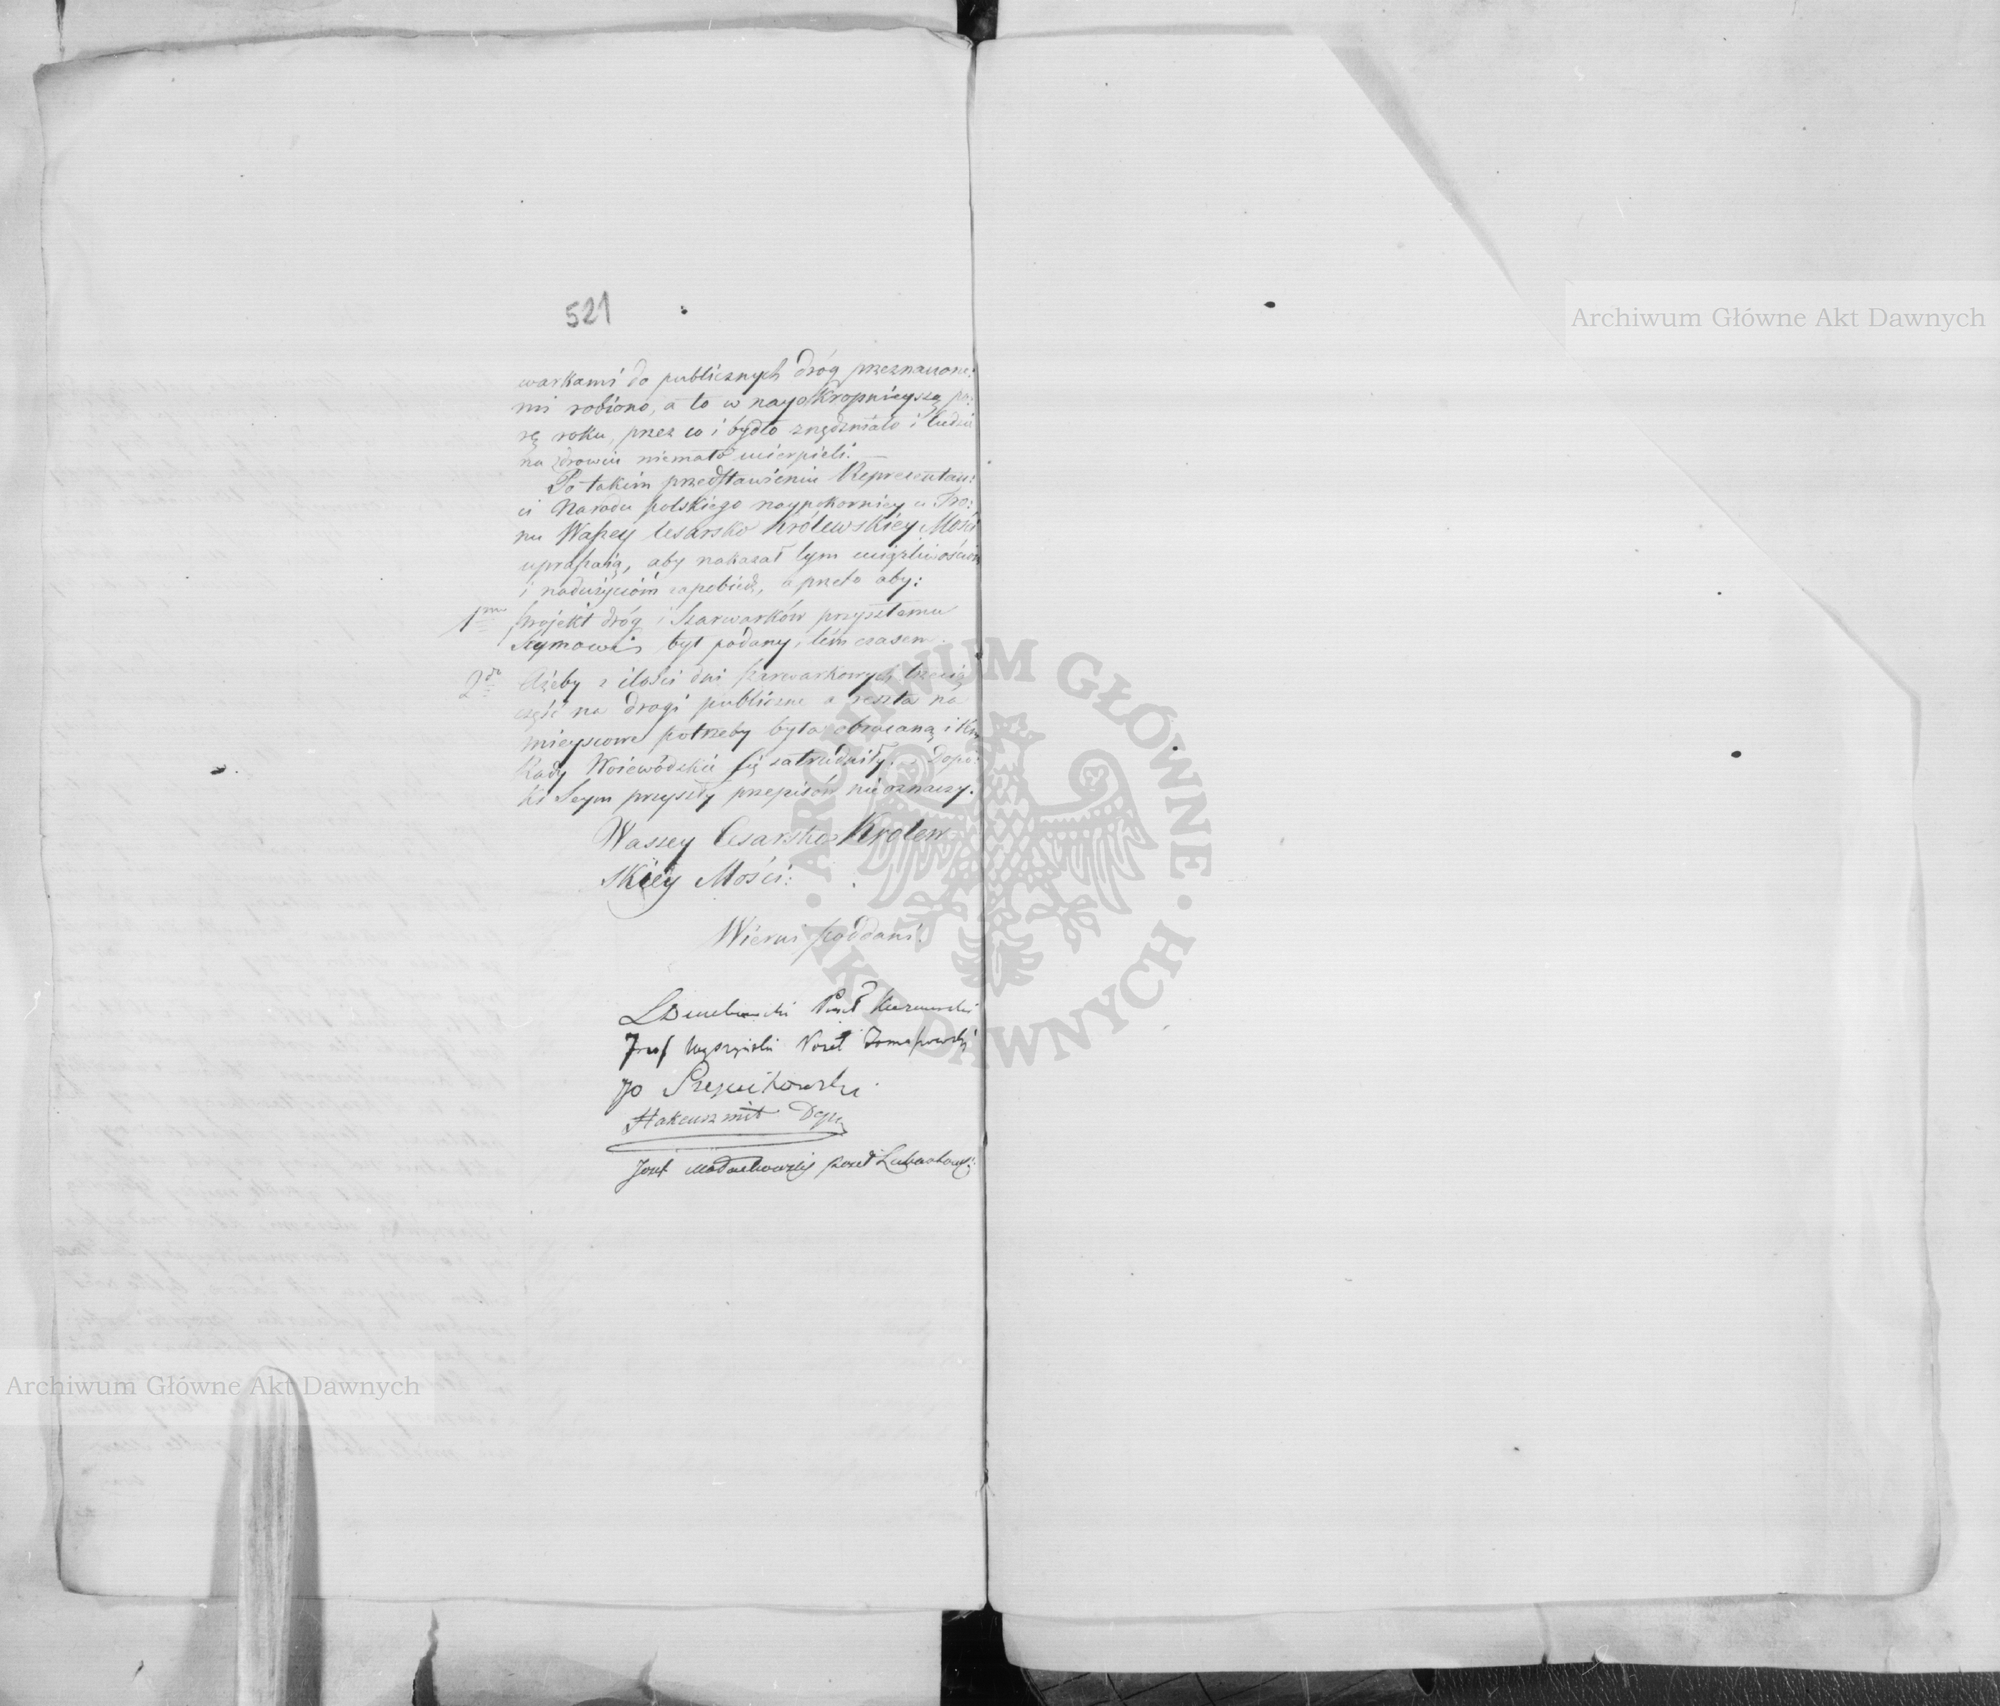 521
warkami do publicznych dróg przeznaczone:
mi robiono, a to w nayokropnieyszą po:
rę roku, przez co i bydło znędzniało i ludzie
na zdrowiu niemało ucierpieli. —
Po takim przedstawieniu Reprezentan:
ci Narodu polskiego naypokorniey u Tro:
nu Waszey Cesarsko Królewskiey Mości
upraszaią, aby nakazał tym uciążliwościom
i nadużyciom zapobiedz, a przeto aby:
1mo projekt dróg i Szarwarków przyszłemu
Seymowi był podany, tém czasem.
2do Ażeby z ilości dni szarwarkowych trzecią
część na drogi publiczne a reszta na
mieyscowe potrzeby była obracaną i
Rady Woiewódzkie się zatrudniły. Dopó:
ki Seym przyszły przepisów nieoznaczy.
Waszey Cesarsko Królew
skiéy Mości:
Wierni poddani.
Poseł
Józef Wyszyński Poseł
Deptt
Józef Małachowski poseł
Archiwum Główne Akt Dawnych
Archiwum Główne Akt Dawnych
ARCHIWUM GŁÓWNE · AKT DAWNYCH ·